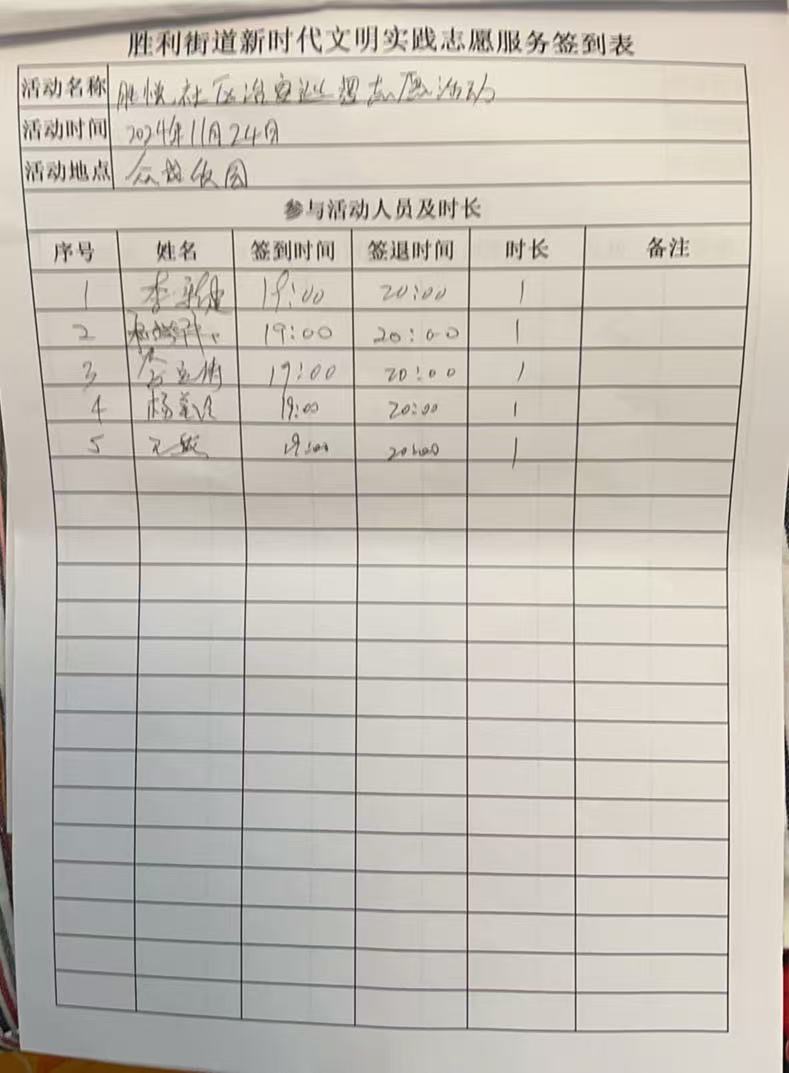 胜利街道新时代文明实践志愿服务签到表
活动名称 胜悦社区治安巡逻志愿活动
活动时间 2024年11月24日
活动地点 众
参与活动人员及时长
序号 姓名 签到时间 签退时间 时长 备注
1 李 19:00 20:00 1
2 19:00 20:00 1
3 19:00 20:00 1
4 杨 19:00 20:00 1
5 19:00 20:00 1